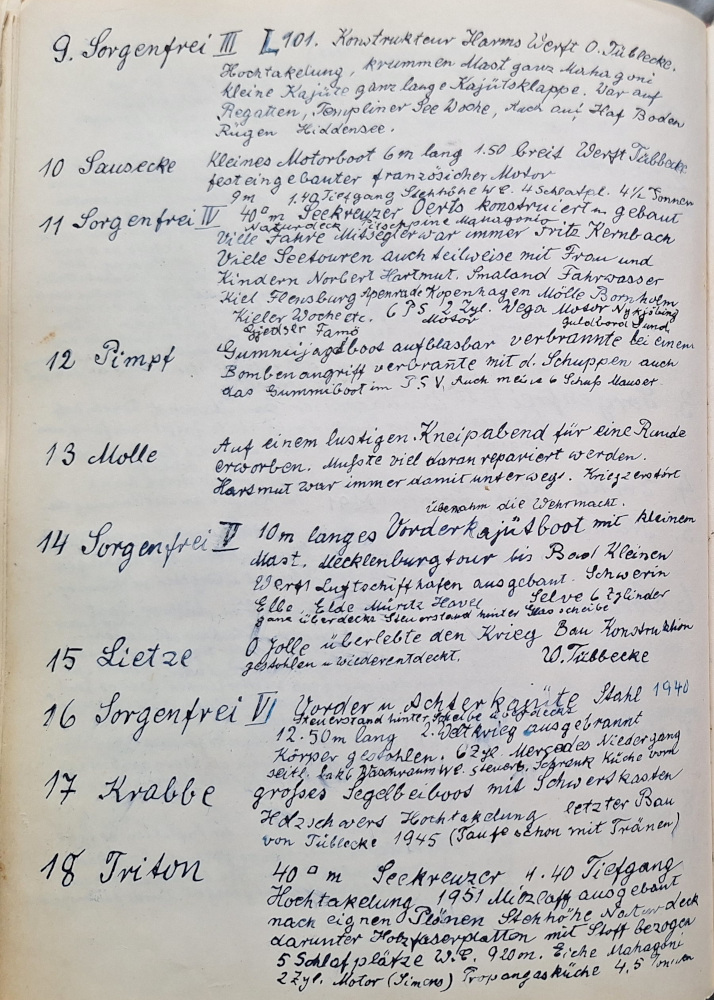 9. Sorgenfrei III L 101. Konstrukteur Harms Werft O. Tübbecke.
Hochtakelung, krummen Mast ganz Mahagoni
kleine Kajüte ganz lange Kajütsklappe. War auf
Regatten, Templiner See Woche, Auch auf Haf Boden
Rügen Hiddensee.
10 Sausecke Kleines Motorboot 6m lang 1.50 breit Werft Tübbecke
fest eingebauter französicher Motor
9m 1.40 Tiefgang Stehhöhe W.C. 4 Schlafpl. 4½ Tonnen
11 Sorgenfrei IV 40□m Seekreuzer Oerts konstruiert u gebaut
Naturdeck Pitschpine Mahagonie
Viele Jahre Mitsegler war immer Fritz Kernbach
Viele Seetouren auch teilweise mit Frau und
Kindern Norbert Hartmut. Smaland Fahrwasser
Kiel Flensburg Apenrade Kopenhagen Mölle Bornholm
Kieler Woche etc. 6 PS 2 Zyl. Vega Motor Nykjöbing
Gjedser Famö Motor Guldbord Sund
12 Pimpf Gummijagdboot aufblasbar verbrannte bei einem
Bombenangriff verbrante mit d. Schuppen auch
das Gummiboot im P.S.V. Auch meine 6 Schuß Mauser.
13 Molle Auf einem lustigen Kneipabend für eine Runde
erworben. Mußte viel daran repariert werden.
Hartmut war immer damit unterwegs. Krieg zerstört
übenahm die Wehrmacht.
14 Sorgenfrei V 10m langes Vorderkajütboot mit kleinem
Mast. Mecklenburgtour bis Bad Kleinen
Werft Luftschiffhafen ausgebaut. Schwerin
Elbe Elde Müritz Havel Selve 6 Zylinder
ganz überdeckt Steuerstand hinter Glasscheibe
15 Lietze O Jolle überlebte den Krieg Bau Konstruktion
gestohlen u wiederentdeckt. W. Tübbecke
16 Sorgenfrei VI Vorder u Achterkajüte Stahl 1940
Steuerstand hinter Scheibe überdeckt
12.50m lang 2. Weltkrieg ausgebrannt
Körper gestohlen. 6 Zyl Mercedes Niedergang
seitl. Waschraum W.C. steuerb. Schrank Küche vorn
17 Krabbe grosses Segelbeiboot mit Schwertkasten
Holzschwert Hochtakelung letzter Bau
von Tübbecke 1945 (Taufe schon mit Tränen)
18 Triton 40□m Seekreuzer 1.40 Tiefgang
Hochtakelung 1951 Mitzlaff ausgebaut
nach eignen Plänen Stehhöhe Naturdeck
darunter Holzfaserplatten mit Stoff bezogen
5 Schlafplätze W.C. 920m. Eiche Mahagoni
2 Zyl. Motor (Simens) Propangasküche 4,5 Tonnen